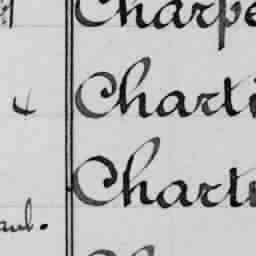 Charpe
Charti
Chart
aul.